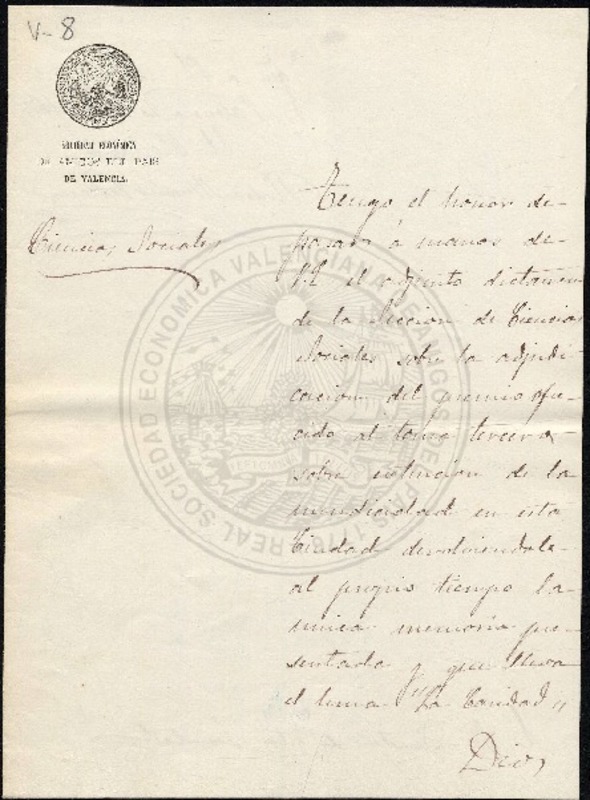 V-8
SOCIEDAD ECONÓMICA
DE AMIGOS DEL PAIS
DE VALENCIA.
Ciencias Sociales
Tengo el honor de
pasar á manos de
V.S. el adjunto dictamen
de la Sección de Ciencias
Sociales sobre la adjudi
cacion del premio ofre
cido al tema tercero
sobre extincion de la
mendicidad en esta
Ciudad devolviendole
al propio tiempo la
única memoria pre
sentada y que lleva
el lema "La Caridad"
Dios
REAL SOCIEDAD ECONOMICA VALENCIANA DE AMIGOS DEL PAIS 1776